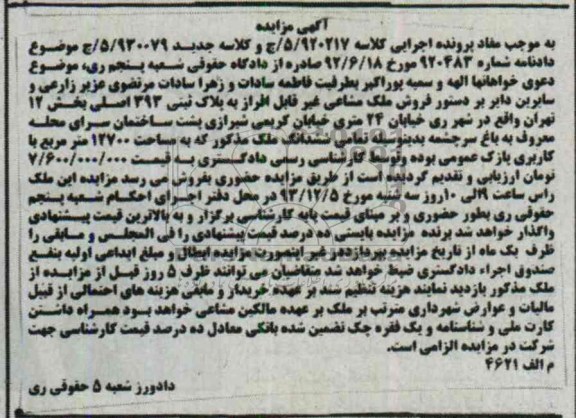 آگهی مزایده
به موجب مفاد پرونده اجرایی کلاسه ۵/۹۲۰۲۱۷/ج و کلاسه جدید ۵/۹۳۰۰۷۹/ج موضوع
دادنامه شماره ۹۲۰۴۸۳ مورخ ۹۲/۶/۱۸ صادره از دادگاه حقوقی شعبه پنجم ری، موضوع
دعوی خواهانها الهه و سمیه پوراکبر بطرفیت فاطمه سادات و زهرا سادات مرتضوی عزیز زارعی و
سایرین دایر بر دستور فروش ملک مشاعی غیر قابل افراز به پلاک ثبتی ۳۹۳ اصلی بخش ۱۲
تهران واقع در شهر ری خیابان ۲۴ متری خیابان کریمی شیرازی پشت ساختمان سرای محله
معروف به باغ سرچشمه بدینوسیله تمامی ششدانگ ملک مذکور که به مساحت ۱۲۷۰۰ متر مربع با
کاربری پارک عمومی بوده وتوسط کارشناسی رسمی دادگستری به قیمت ۷/۶۰۰/۰۰۰/۰۰۰
تومان ارزیابی و تقدیم گردیده است از طریق مزایده حضوری بفروش می رسد مزایده این ملک
راس ساعت ۹الی ۱۰روز سه شنبه مورخ ۹۳/۱۲/۵ در محل دفتر اجرای احکام شعبه پنجم
حقوقی ری بطور حضوری و بر مبنای قیمت پایه کارشناسی برگزار و به بالاترین قیمت پیشنهادی
واگذار خواهد شد برنده مزایده بایستی ده درصد قیمت پیشنهادی را فی المجلس و مابقی را
ظرف یک ماه از تاریخ مزایده بپردازد در غیر اینصورت مزایده ابطال و مبلغ ابداعی اولیه بنفع
صندوق اجراء دادگستری ضبط خواهد شد متقاضیان می توانند ظرف ۵ روز قبل از مزایده از
ملک مذکور بازدید نمایند هزینه تنظیم سند بر عهده خریدار و مابقی هزینه های احتمالی از قبیل
مالیات و عوارض شهرداری مترتب بر ملک بر عهده مالکین مشاعی خواهد بود همراه داشتن
کارت ملی و شناسنامه و یک فقره چک تضمین شده بانکی معادل ده درصد قیمت کارشناسی جهت
شرکت در مزایده الزامی است.
م الف ۴۶۲۱
دادورز شعبه ۵ حقوقی ری